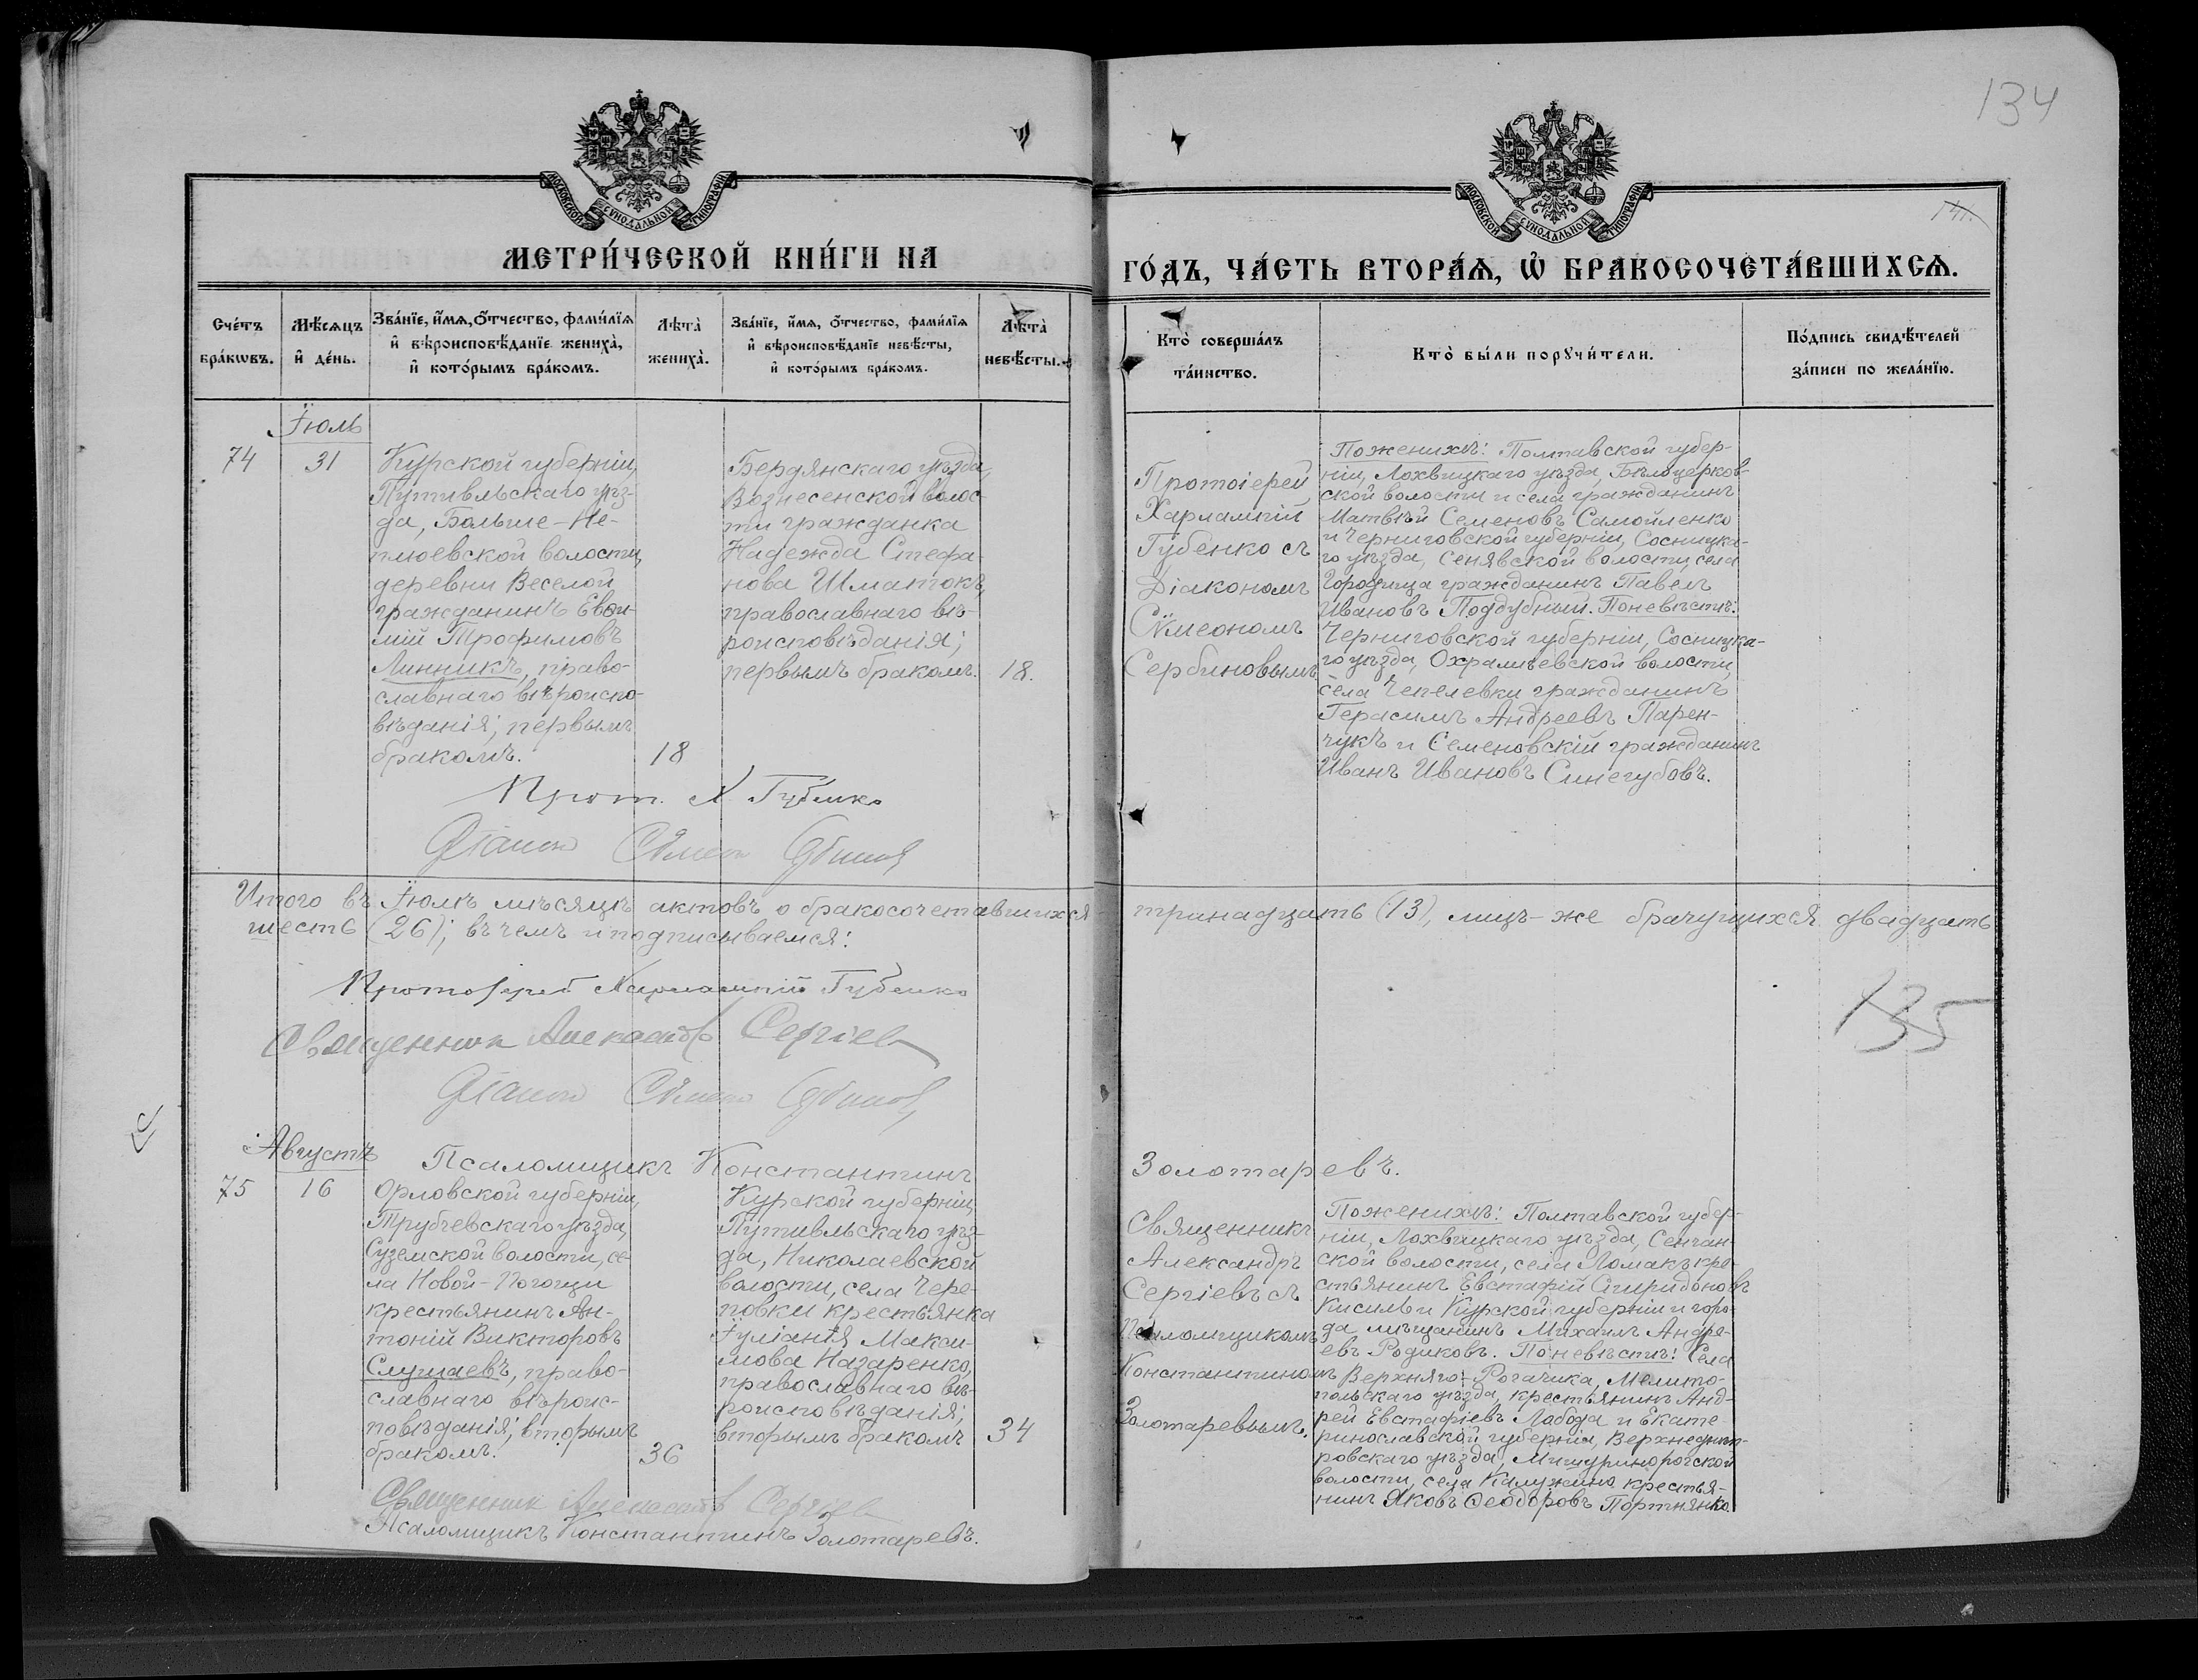 134
141.
МОСКОВСКОЙ СѴНОДАЛЬНОЙ ТИПОГРАФІИ
МОСКОВСКОЙ СѴНОДАЛЬНОЙ ТИПОГРАФІИ
МЕТРИ́ЧЕСКОЙ КНИ́ГИ НА
ГО́ДЪ, ЧА́СТЬ ВТОРА́Ѧ, Ѡ҆ БРАКОСОЧЕТА́ВШИХСѦ.
Сче́тъ
бра́кѡвъ.
Мѣ́сѧцъ
и҆ де́нь.
Зва́нїе, и҆́мѧ, ѻ҆́тчество, фами́лїѧ
и҆ вѣроисповѣ́данїе жениха̀,
и҆ кото́рымъ бра́комъ.
Лѣта̀
жениха̀.
Зва́нїе, и҆́мѧ, ѻ҆́тчество, фами́лїѧ
и҆ вѣроисповѣ́данїе невѣ́сты,
и҆ кото́рымъ бра́комъ.
Лѣта̀
невѣ́сты.
Кто̀ соверша́лъ
та́инство.
Кто̀ бы́ли порꙋчи́тели.
По́дпись свидѣ́телей
за́писи по жела́нїю.
Іюль
74
31
Курской губерніи,
Путивльскаго уѣз-
да, Больше-Не-
плюевской волости,
деревни Веселой
гражданинъ Евѳи-
мій Трофимовъ
Линникъ, право-
славнаго вѣроиспо-
вѣданія; первымъ
бракомъ.
18
Бердянскаго уѣзда,
Вознесенской волос-
ти гражданка
Надежда Стефа-
нова Шматокъ,
православнаго вѣ-
роисповѣданія;
первымъ бракомъ.
18.
Протоіерей
Харлампій
Губенко съ
Діакономъ
Сѵмеономъ
Сербиновымъ
По женихѣ: Полтавской губер-
ніи, Лохвицкаго уѣзда, Бѣлоцерков-
ской волости и села гражданинъ
Матвѣй Семеновъ Самойленко
и Черниговской губерніи, Сосницка-
го уѣзда, Сенявской волости, села
Городища гражданинъ Павелъ
Ивановъ Поддубный. По невѣстѣ:
Черниговской губерніи, Сосницка-
го уѣзда, Охрамѣевской волости,
села Чепелевки гражданинъ
Герасимъ Андреевъ Парен-
чукъ и Семеновскій гражданинъ
Иванъ Ивановъ Синегубовъ.
Прот. Х Губенко
Діакон Сѵмеон Сербинов
Итого въ Іюлѣ мѣсяцѣ актовъ о бракосочетавшихся тринадцать (13), лицъ-же брачущихся двадцать
шесть (26); въ чемъ и подписываемся:
Протоіерей Харлампій Губенко
Священник Александр Сергіев
Діакон Сѵмеон Сербинов
135
Псаломщикъ Константинъ Золотаревъ.
Августъ
75
16
Орловской губерніи,
Трубчевскаго уѣзда,
Суземской волости, се-
ла Новой-Погощи
крестьянинъ Ан-
тоній Викторовъ
Слушаевъ, право-
славнаго вѣроис-
повѣданія; вторымъ
бракомъ.
36
Курской губерніи,
Путивльскаго уѣз-
да, Николаевской
волости, села Чере-
повки крестьянка
Іуліанія Макси-
мова Назаренко,
православнаго вѣ-
роисповѣданія;
вторымъ бракомъ
34
Священникъ
Александръ
Сергіевъ съ
Псаломщикомъ
Константиномъ
Золотаревымъ.
По женихѣ: Полтавской губер-
ніи, Лохвицкаго уѣзда, Сенчан-
ской волости, села Ломакъ кре-
стьянинъ Евстафій Спиридоновъ
Кисиль и Курской губерніи и горо-
да мѣщанинъ Михаилъ Андре-
евъ Родиковъ. По невѣстѣ: Села
Верхняго-Рогачика, Мелито-
польскаго уѣзда, крестьянинъ Анд-
рей Евстафіевъ Лабода и Екате-
ринославской губерніи, Верхнеднѣп-
ровскаго уѣзда, Мишуринорогской
волости, села Калужино крестья-
нинъ Яковъ Ѳеодоровъ Портнянко.
Священник Александр Сергіев
Псаломщикъ Константинъ Золотаревъ.